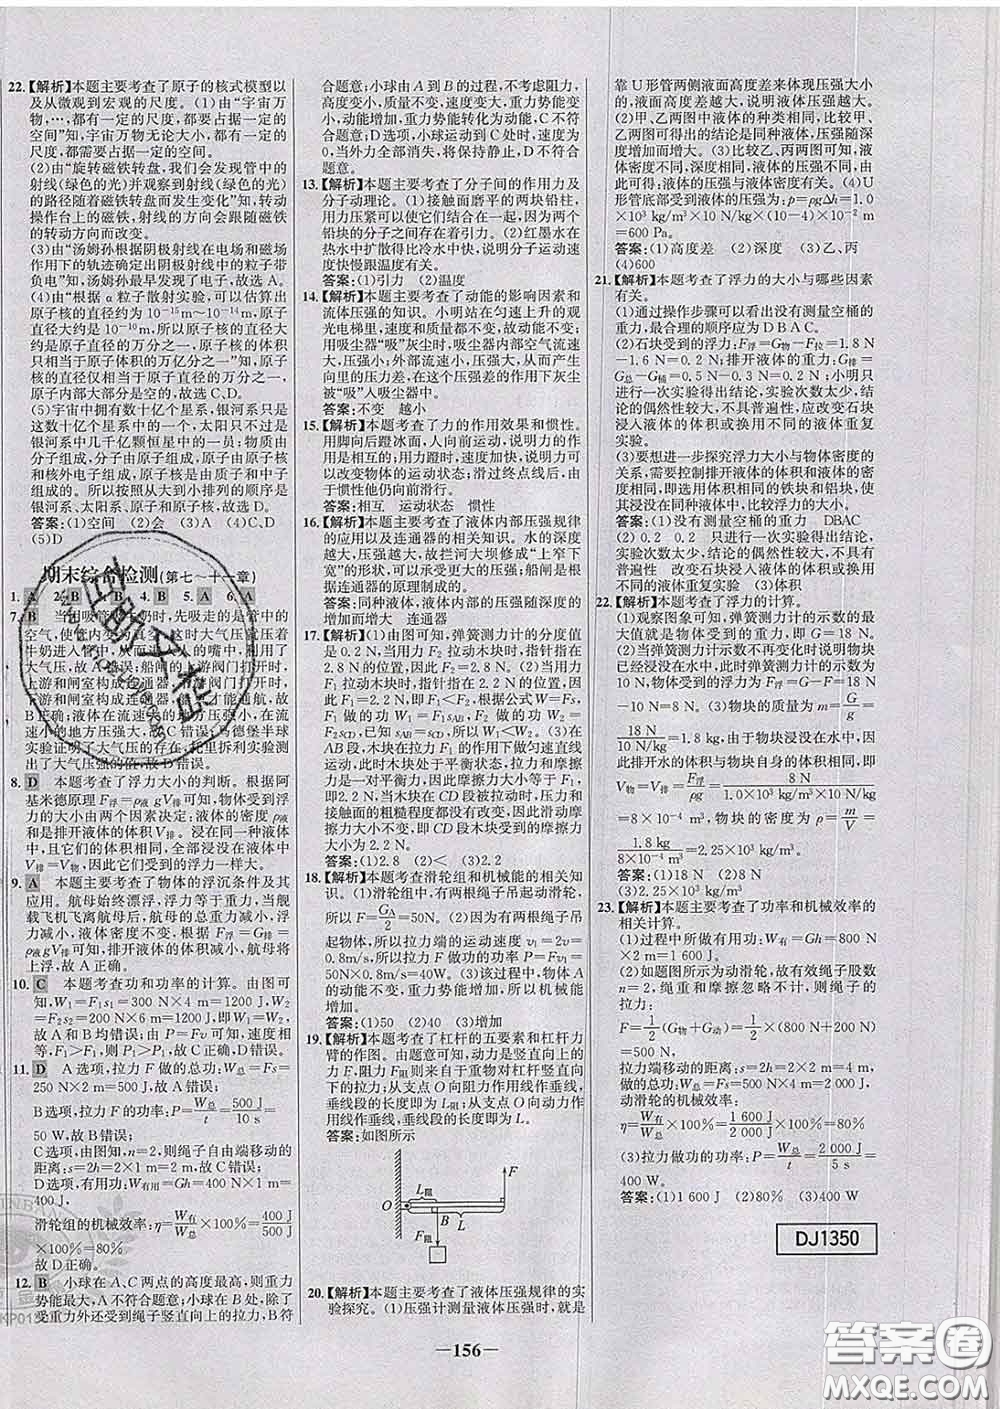 22.【解析】本题主要考查了原子的核式模型以
及从微观到宏观的尺度。(1)由“宇宙万
物,…,都有一定的尺度,都需占据一定的
空间”知,宇宙万物无论大小,都有一定的
尺度,都需要占据一定的空间。
(2)由“旋转磁铁转盘,我们会发现管中的
射线(绿色的光)并观察到射线(绿色的光)
的路径随着磁铁转盘而发生变化”知,转动
操作台上的磁铁,射线的方向会跟随磁铁
的转动方向而改变。
(3)由“汤姆孙根据阴极射线在电场和磁场
作用下的轨迹确定阴极射线中的粒子带负
电”知,汤姆孙最早发现了电子,故选A。
(4)由“根据α粒子散射实验,可以估算出
原子核的直径约为10⁻¹⁵m～10⁻¹⁴m,原子
直径大约为10⁻¹⁰m,所以原子核的直径大
约是原子直径的万分之一,原子核的体积
只相当于原子体积的万亿分之一”知,原子
核的直径仅相当于原子直径的万分之一,
原子内部大部分是空的,故选C、D。
(5)宇宙中拥有数十亿个星系,银河系只是
这数十亿个星系中的一个,太阳只不过是
银河系中几千亿颗恒星中的一员;物质由
分子组成,分子由原子组成,原子由原子核
和核外电子组成,原子核是由质子和中子
组成的。所以从大到小排列的顺序是
银河系、太阳系、原子和原子核,故选D。
答案:(1)空间 (2)会 (3)A (4)C、D
(5)D
期末综合检测(第七～十一章)
1. A 2. B 3. 4. B 5. A 6. A
7. B 当用吸管喝牛奶时,先吸走的是管中的
空气,使管内变为真空,这时大气压就压着
牛奶进入管中,从而进入嘴中,利用了大气
压,故A错误;船闸的上游阀门打开时,
上游和闸室构成连通器;下游阀门打开时,
下游和闸室构成连通器,才能通航,故
B正确;液体在流速大的地方压强小,在流
速小的地方压强大,故C错误;马德堡半球
实验证明了大气压的存在,托里拆利实验
测出了大气压强的值,故D错误。
8. D 本题考查了浮力大小的判断。根据阿
基米德原理F浮=ρ液gV排可知,物体受到浮
力大小由两个因素决定:液体的密度和
排开液体的体积V排。浸在同一种液体中,
液体密度相同,全部浸没在液体中
V排=V物,因此它们受到的浮力一样大。
9. A 本题主要考查了物体的浮沉条件及其
应用。航母始终漂浮,浮力等于重力,当舰
载机飞离航母后,航母的总重力减小,浮力
减小,液体密度不变,根据F浮=ρ液
gV排可知,排开液体的体积减小,航母将
上浮,故A正确。
10. C 本题考查功和功率的计算。由图可
知,W₁=F₁s₁=300 N×4 m=1200 J,W₂
=F₂s₂=200 N×6 m=1200 J,即W₁=W₂,
故A和B均错误;由P=Fv可知,速度相
等,F₁>F₁,因此P₁>P₁,故C正确,D错误。
11. D A选项,拉力F做的总功:W总=Fs=
250 N×2 m=500 J,故A错误;
B选项,拉力F的功率:P=W总/t=500 J/10 s=
50 W,故B错误;
C选项,由图知,n=2,则绳子自由端移动的
距离:s=2h=2×1 m=2 m,故C错误;
D选项,有用功:W有用=Gh=400 N×1 m=
400 J,
滑轮组的机械效率:η=W有/W总×100%=400 J/500 J
×100%=80%
故D正确。
12. B 小球在A、C两点的高度最高,则重力
势能最大,A不符合题意;小球在B处,除了
受重力外还受到绳子竖直向上的拉力,B符
合题意;小球由A到B的过程,不计阻力,
高度变小,质量不变,重力势能变小,动能
增加,重力势能转化为动能,C不符
合题意;D选项,小球运动至C处时,速度为
0,当外力全部消失,将保持静止,D不符合
题意。
13.【解析】本题主要考查了分子间的作用力及
分子动理论。(1)接触面磨平的两块铅柱,
用力压紧可以使它们结合在一起,因为两个
铅块的分子间存在引力。(2)红墨水在
热水中扩散得比冷水中快,说明分子运动速
度快慢跟温度有关。
答案:(1)引力 (2)温度
14.【解析】本题主要考查了动能的影响因素和
流体压强的知识。小明站在匀速上升的观
光电梯里,质量不变,速度不变,动能不变。
用吸尘器“吸”灰尘时,吸尘器内部空气流速
大,压强小;外部流速小,压强大,从而产生
向里的压力差,在这个压强差的作用下灰尘
被“吸”入吸尘器,越靠近中心,风速越大,压
强越小。
答案:不变 越小
15.【解析】本题考查了力的作用效果和惯性。
用脚向后蹬冰面,人向前运动,说明力的作
用是相互的;用力蹬时,速度变快,说明力
可以改变物体的运动状态;滑过终点线后,由
于惯性他仍向前滑行。
答案:相互 运动状态 惯性
16.【解析】本题主要考查了液体内部压强规律
的应用以及连通器的相关知识。水的深度
越深,压强越大,故拦河大坝做成“上窄下
宽”的形式,可以承受更大的压强;船闸是根
据连通器的原理制成的。
答案:同种液体,液体内部的压强随深度的
增加而增大 连通器
17.【解析】(1)由图可知,弹簧测力计的分度值
是0.2 N,F₁拉动木块时,指针指示的位置
在2.8 N的位置,所以F₁为2.8 N。(2)用
力F₂拉动木块时,指针指示在
2.8 N的左侧,即F₁<F₂,根据公式W=Fs,
F₁做的功W₁=F₁sAB,F₂做的功W₂=
F₂sCD,已知sAB=sCD,所以W₁<W₂。(3)在
AB段,木块在拉力F₁的作用下做匀速直线
运动,木块处于平衡状态,拉力F₁与摩擦力
是一对平衡力,因此摩擦力大小等于F₁,即
2.2 N;当木块在CD段被拉动时,压力和
接触面的粗糙程度都没有改变,因此滑动摩
擦力大小不变,即CD段木块受到的摩擦力
大小为2.2 N。
答案:(1)2.8 (2)< (3)2.2
18.【解析】本题考查滑轮组和机械能的相关知
识。(1)滑轮组中,有两根绳子吊起动滑轮,
所以F=GA/2=50N。(2)因为有两根绳子吊
起物体,所以拉力端的运动速度v₁=2v=
0.8m/s,所以P=Fv=50N×
0.8m/s=40W。(3)该过程中,因为物体动
能不变,重力势能增加,所以机械能
增加。
答案:(1)50 (2)40 (3)增加
19.【解析】本题考查了杠杆的五要素和杠杆力
臂的作图。由题意可知,动力是竖直向上的
力F,阻力F阻来自于重物对杠杆竖直
向下的拉力,从支点O向阻力作用线作垂线,
垂线段的长度即为L阻;从支点O向动力
作用线作垂线,垂线段的长度即为L。
答案:如图所示
F
L阻
O
B
L
F阻
20.【解析】本题主要考查了液体压强规律的实
验探究。(1)压强计测量液体压强时,就是
靠U形管两侧液面高度差来体现压强大小
的,液面高度差越大,说明液体压强越大。
(2)甲、乙两图中液体的密度相同,比较甲、
乙两图可得出的结论是同种液体,压强随深
度增加而增大。
(3)比较乙、丙两图可知,两图所用液体密度
不同,深度相同,液体压强不同,说明
液体的压强与液体的密度有关。(4)U
形管底部受到液体的压强为:p=ρgΔh=1.0
×10³ kg/m³×10 N/kg×(10-4)×10⁻² m
=600 Pa。
答案:(1)高度差 (2)深度 (3)乙、丙
(4)600
21.【解析】本题考查了浮力的大小与哪些因素
有关。
(1)通过操作步骤可以看出没有测量空桶的
重力,最合理的顺序应为DBAC。
(2)石块受到的浮力:F浮=G物-F拉=1.8 N
-1.6 N=0.2 N;排开液体的重力:G排=
G总-G桶=0.5 N-0.3 N=0.2 N;小明只进
行一次实验得出结论,实验次数太少,结
论的偶然性较大,不具有普遍性,应改变石块
浸入液体的体积或换用不同的液体重复
实验。
(3)要想进一步探究浮力大小与物体密度的
关系,需要控制排开液体的体积和液体的密
度相同,即选用体积相同的铁块和铝块,且
浸没在同种液体中进行实验。
答案:(1)没有测量空桶的重力 DBAC
(2)0.2 0.2 只进行一次实验,结论不具
有普遍性 改变石块浸入液体的体积或换用
不同的液体重复实验 (3)体积
22.【解析】本题考查了浮力的计算。
(1)观察图象可知,弹簧测力计的示数的最
大值就是物体受到的重力,即G=18 N。
(2)当弹簧测力计示数不再变化时说明物块
已经浸没在水中,此时弹簧测力计的示数为
10 N,所以物块受到的浮力F浮=G-F=18 N
-10 N=8 N;(3)物块的质量为m=G/g=
18 N/10 N/kg=1.8 kg;由于物块浸没在水中,因
此排开水的体积与物块自身的体积相同,即
V物=V排=F浮/ρg=8 N/1.0×10³ kg/m³×10 N/kg
=8×10⁻⁴ m³,物块的密度为ρ=m/V=
1.8 kg/8×10⁻⁴ m³=2.25×10³ kg/m³。
答案:(1)18 N (2)8 N
(3)2.25×10³ kg/m³
23.【解析】本题主要考查了功率和机械效率的
相关计算。
(1)过程中所做有用功:W有=Gh=800 N
×2 m=1 600 J。
(2)如题图所示为动滑轮,故有绳子股数
n=2;绳重和摩擦忽略不计,则绳子的
拉力:
F=1/2(G物+G动)=1/2×(800 N+200 N)=
500 N
拉力端移动的距离:s=2h=2×2 m=4 m,
做的总功:W总=Fs=500 N×4 m=2 000 J
动滑轮的机械效率:
η=W有/W总×100%=1 600 J/2 000 J×100%=80%
(3)拉力做功的功率:P=W总/t=2 000 J/5 s=
400 W。
答案:(1)1 600 J (2)80% (3)400 W
DJ1350
—156—
答案圈
MXQE.COM